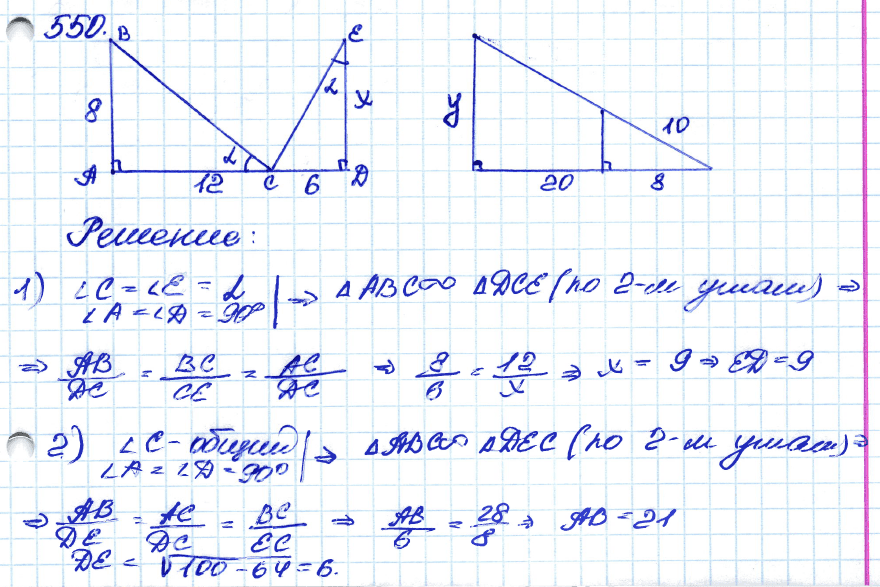 550.
B E
8 α α x y 10
A 12 C 6 D 20 8
Решение:
1) ∠C = ∠E = α
∠A = ∠D = 90° | ⇒ △ABC ∞ △DCE (по 2-м углам) ⇒
⇒ AB/DC = BC/CE = AC/DC ⇒ 8/6 = 12/x ⇒ x = 9 ⇒ ED = 9
2) ∠C - общий
∠A = ∠D = 90° | ⇒ △ABC ∞ △DEC (по 2-м углам) ⇒
⇒ AB/DE = AC/DC = BC/EC ⇒ AB/6 = 28/8 ⇒ AB = 21
DE = √100-64 = 6.